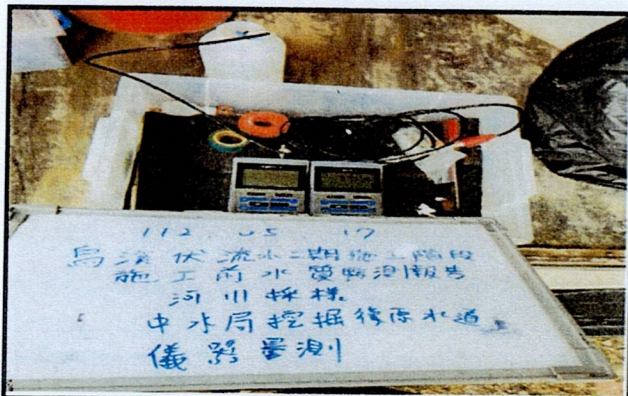 112 05 17
烏溪伏流水二期施工階段
施工前水質監測報告
河川採樣
中水局挖掘後原水道
儀器量測